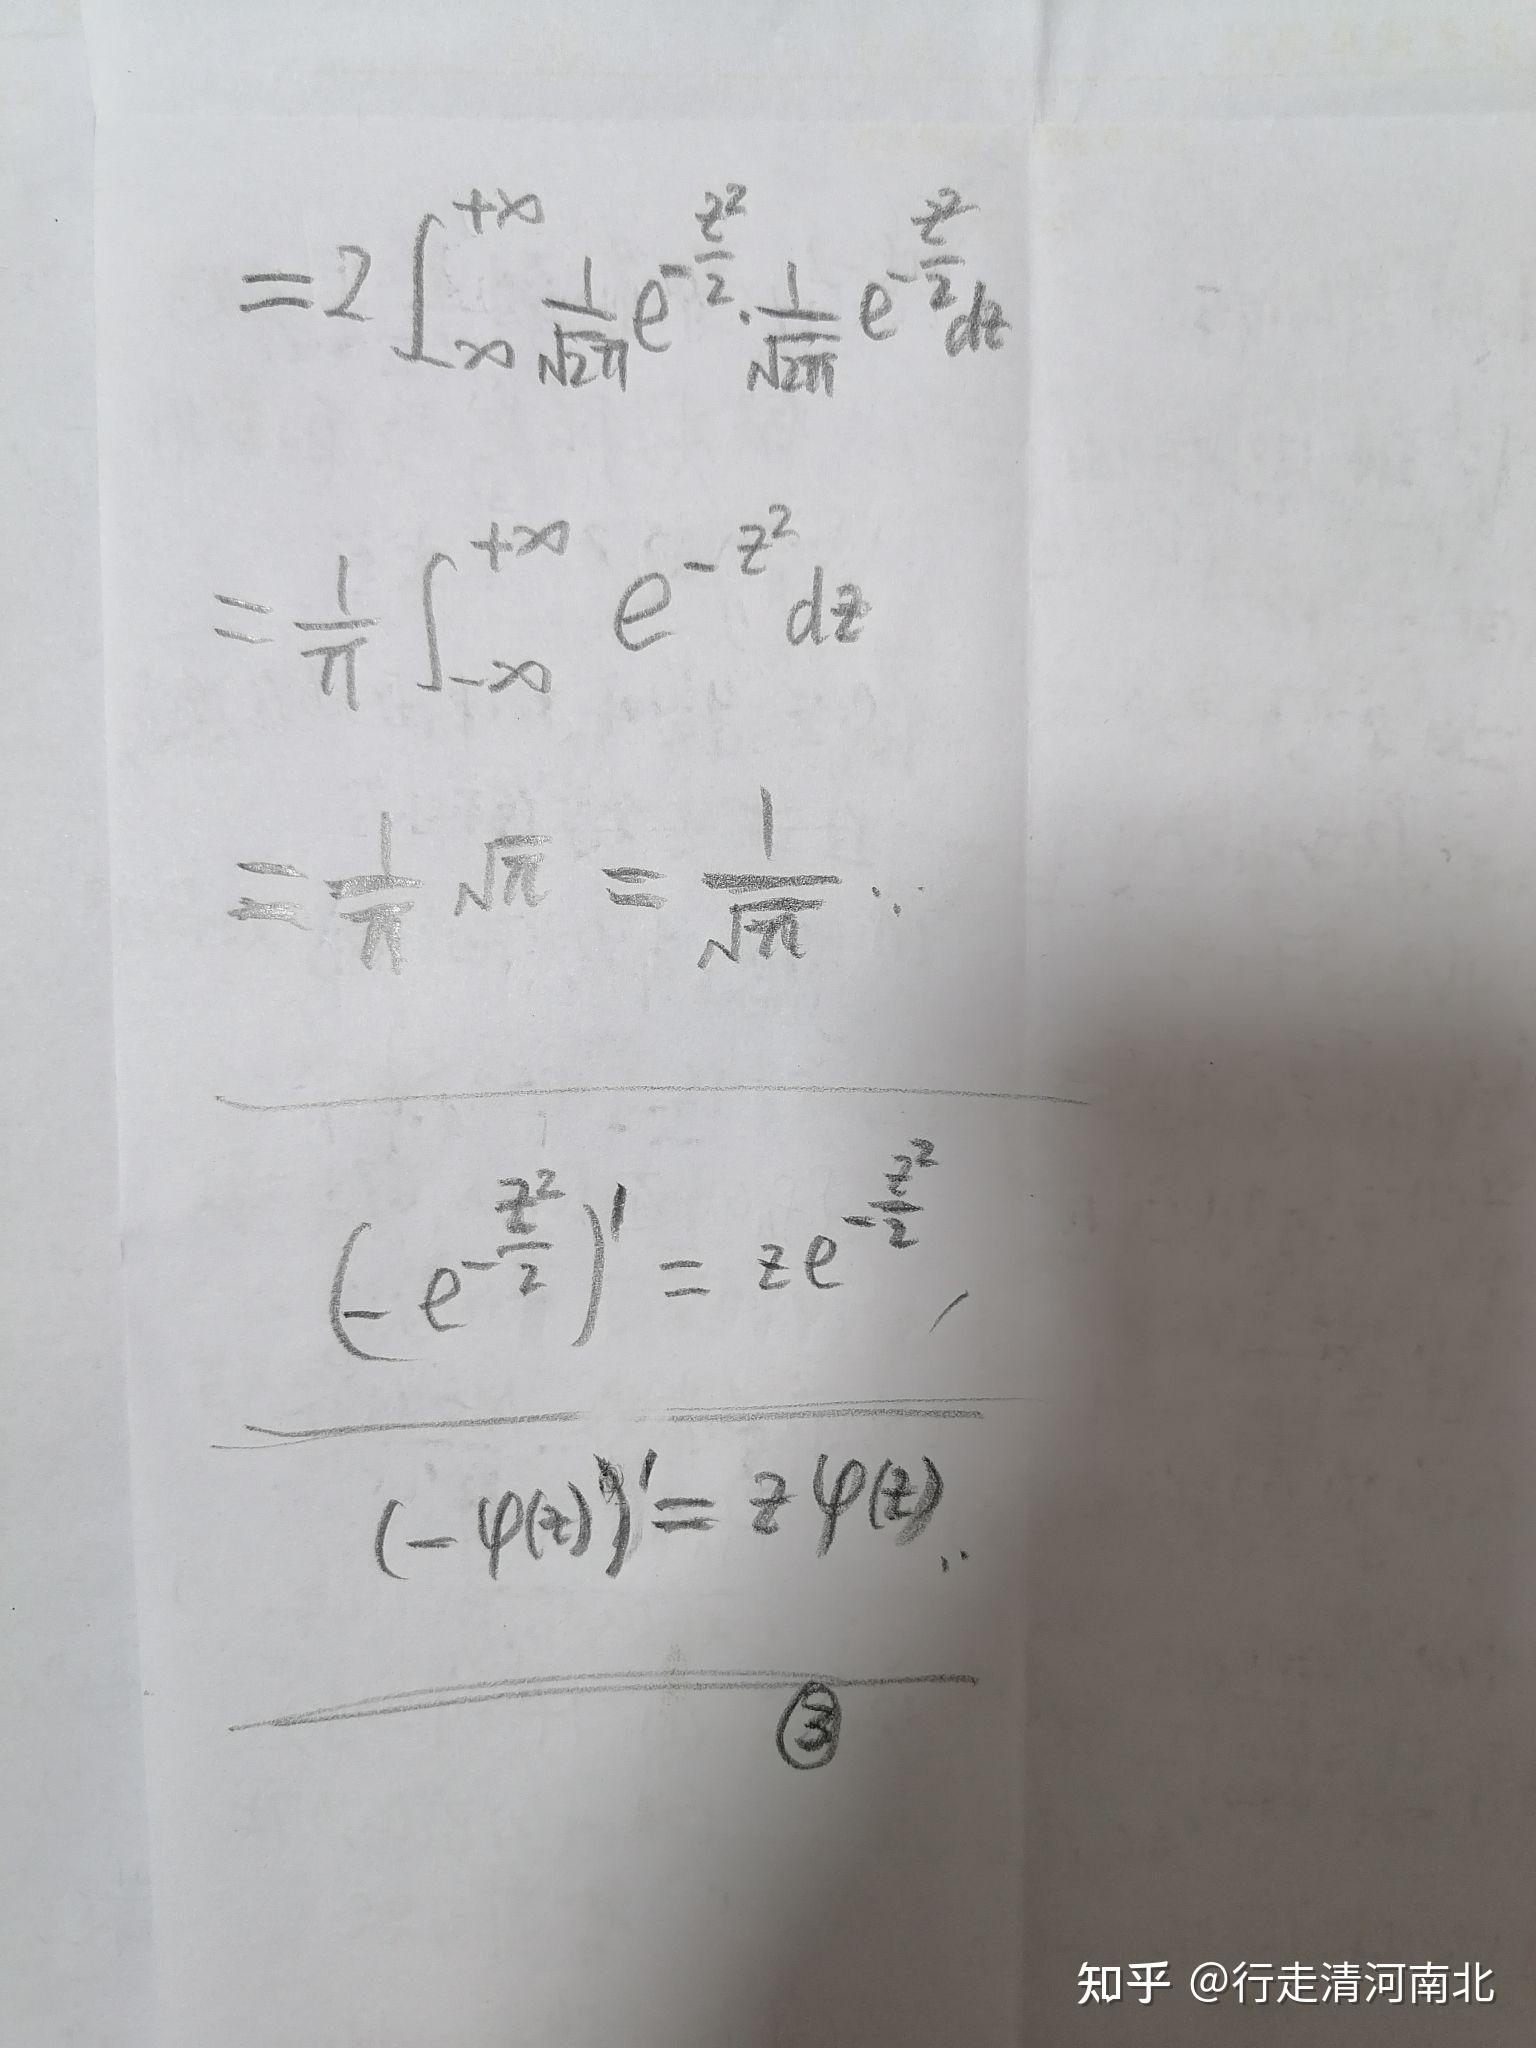 = 2 ∫_{-∞}^{+∞} \frac{1}{\sqrt{2π}} e^{-\frac{z^2}{2}} · \frac{1}{\sqrt{2π}} e^{-\frac{z^2}{2}} dz
= \frac{1}{π} ∫_{-∞}^{+∞} e^{-z^2} dz
= \frac{1}{π} \sqrt{π} = \frac{1}{\sqrt{π}} ..
(-e^{-\frac{z^2}{2}})' = z e^{-\frac{z^2}{2}},
(-φ(z))' = z φ(z) ..
③
知乎 @行走清河南北